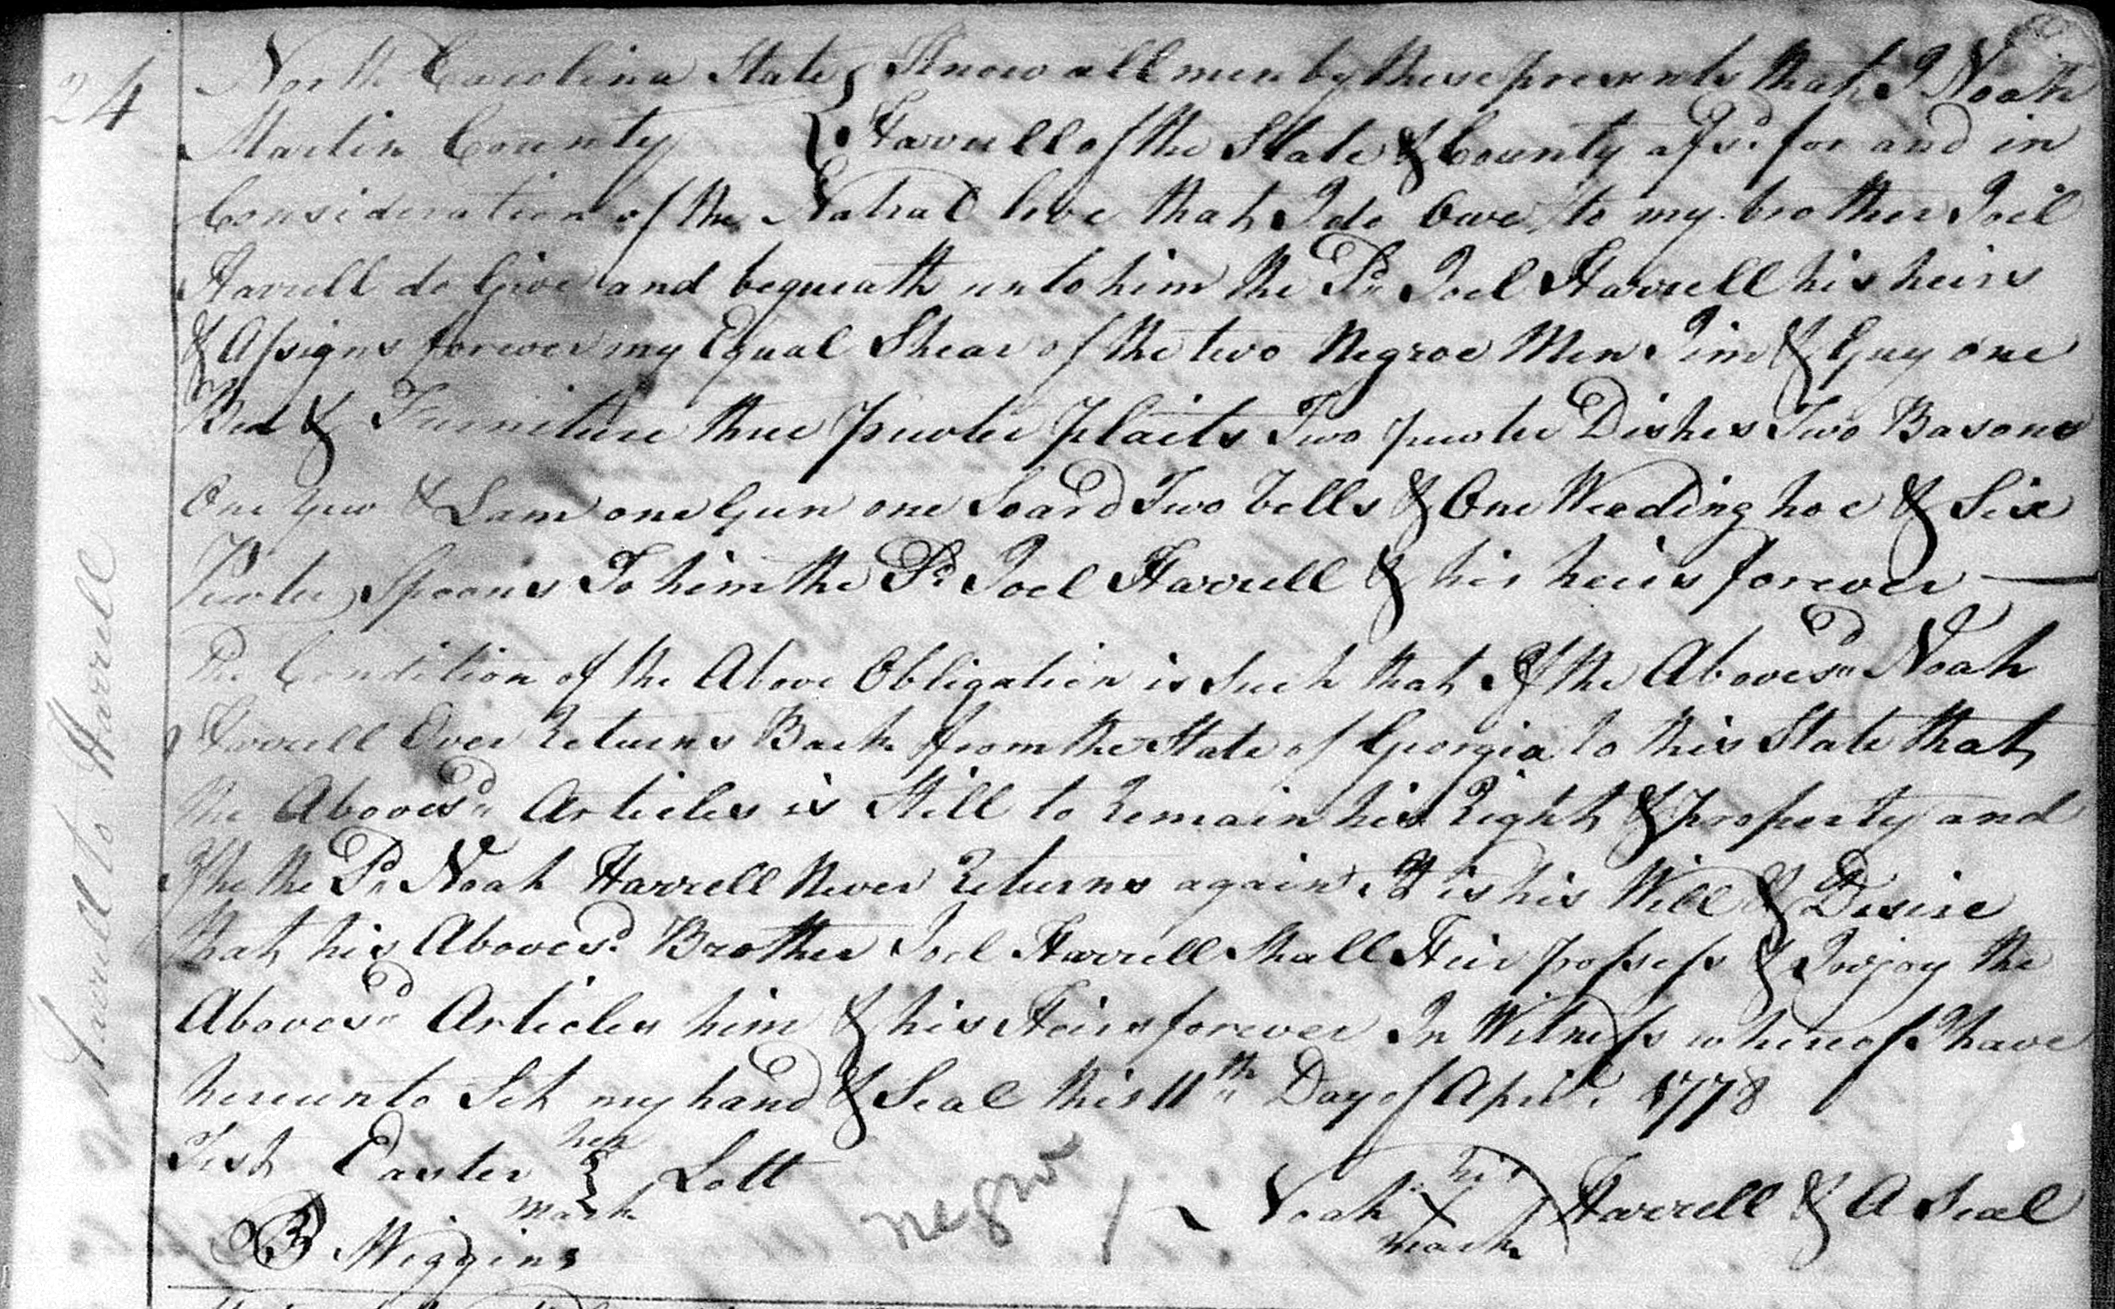 24
North Carolina State } Know all men by these presents that I Noah
Martin County } Harrell of the State & County afsd. for and in
Consideration of the Natral love that I do Owe to my brother Joel
Harrell do Give and bequeath unto him the Sd. Joel Harrell his heirs
& Assigns forever my Equal Shear of the two Negroe Men Jim & Guy one
Bed & Furniture three pewter plaits Two pewter Dishes Two Basons
One yew & Lam one Gun one Soard Two bells & One Weeding hoe & Six
Pewter Spoons To him the Sd. Joel Harrell & his heirs forever
The Condition of the Above Obligation is Such that If the Abovesd. Noah
Harrell Ever Returns Back from the State of Georgia to this State that
the Abovesd. Articles is Still to Remain his Right & property and
If he the Sd. Noah Harrell Never Returns again It is his Will & Desire
that his Abovesd. Brother Joel Harrell Shall Heir possess & Injoy the
Abovesd. Articles him & his Heirs forever In Witness whereof I have
hereunto Set my hand & Seal this 11th Day of April 1778
Test Easter her mark Lott
Noah his X mark Harrell & A Seal
B Wiggins
negro
Harrell to Harrell